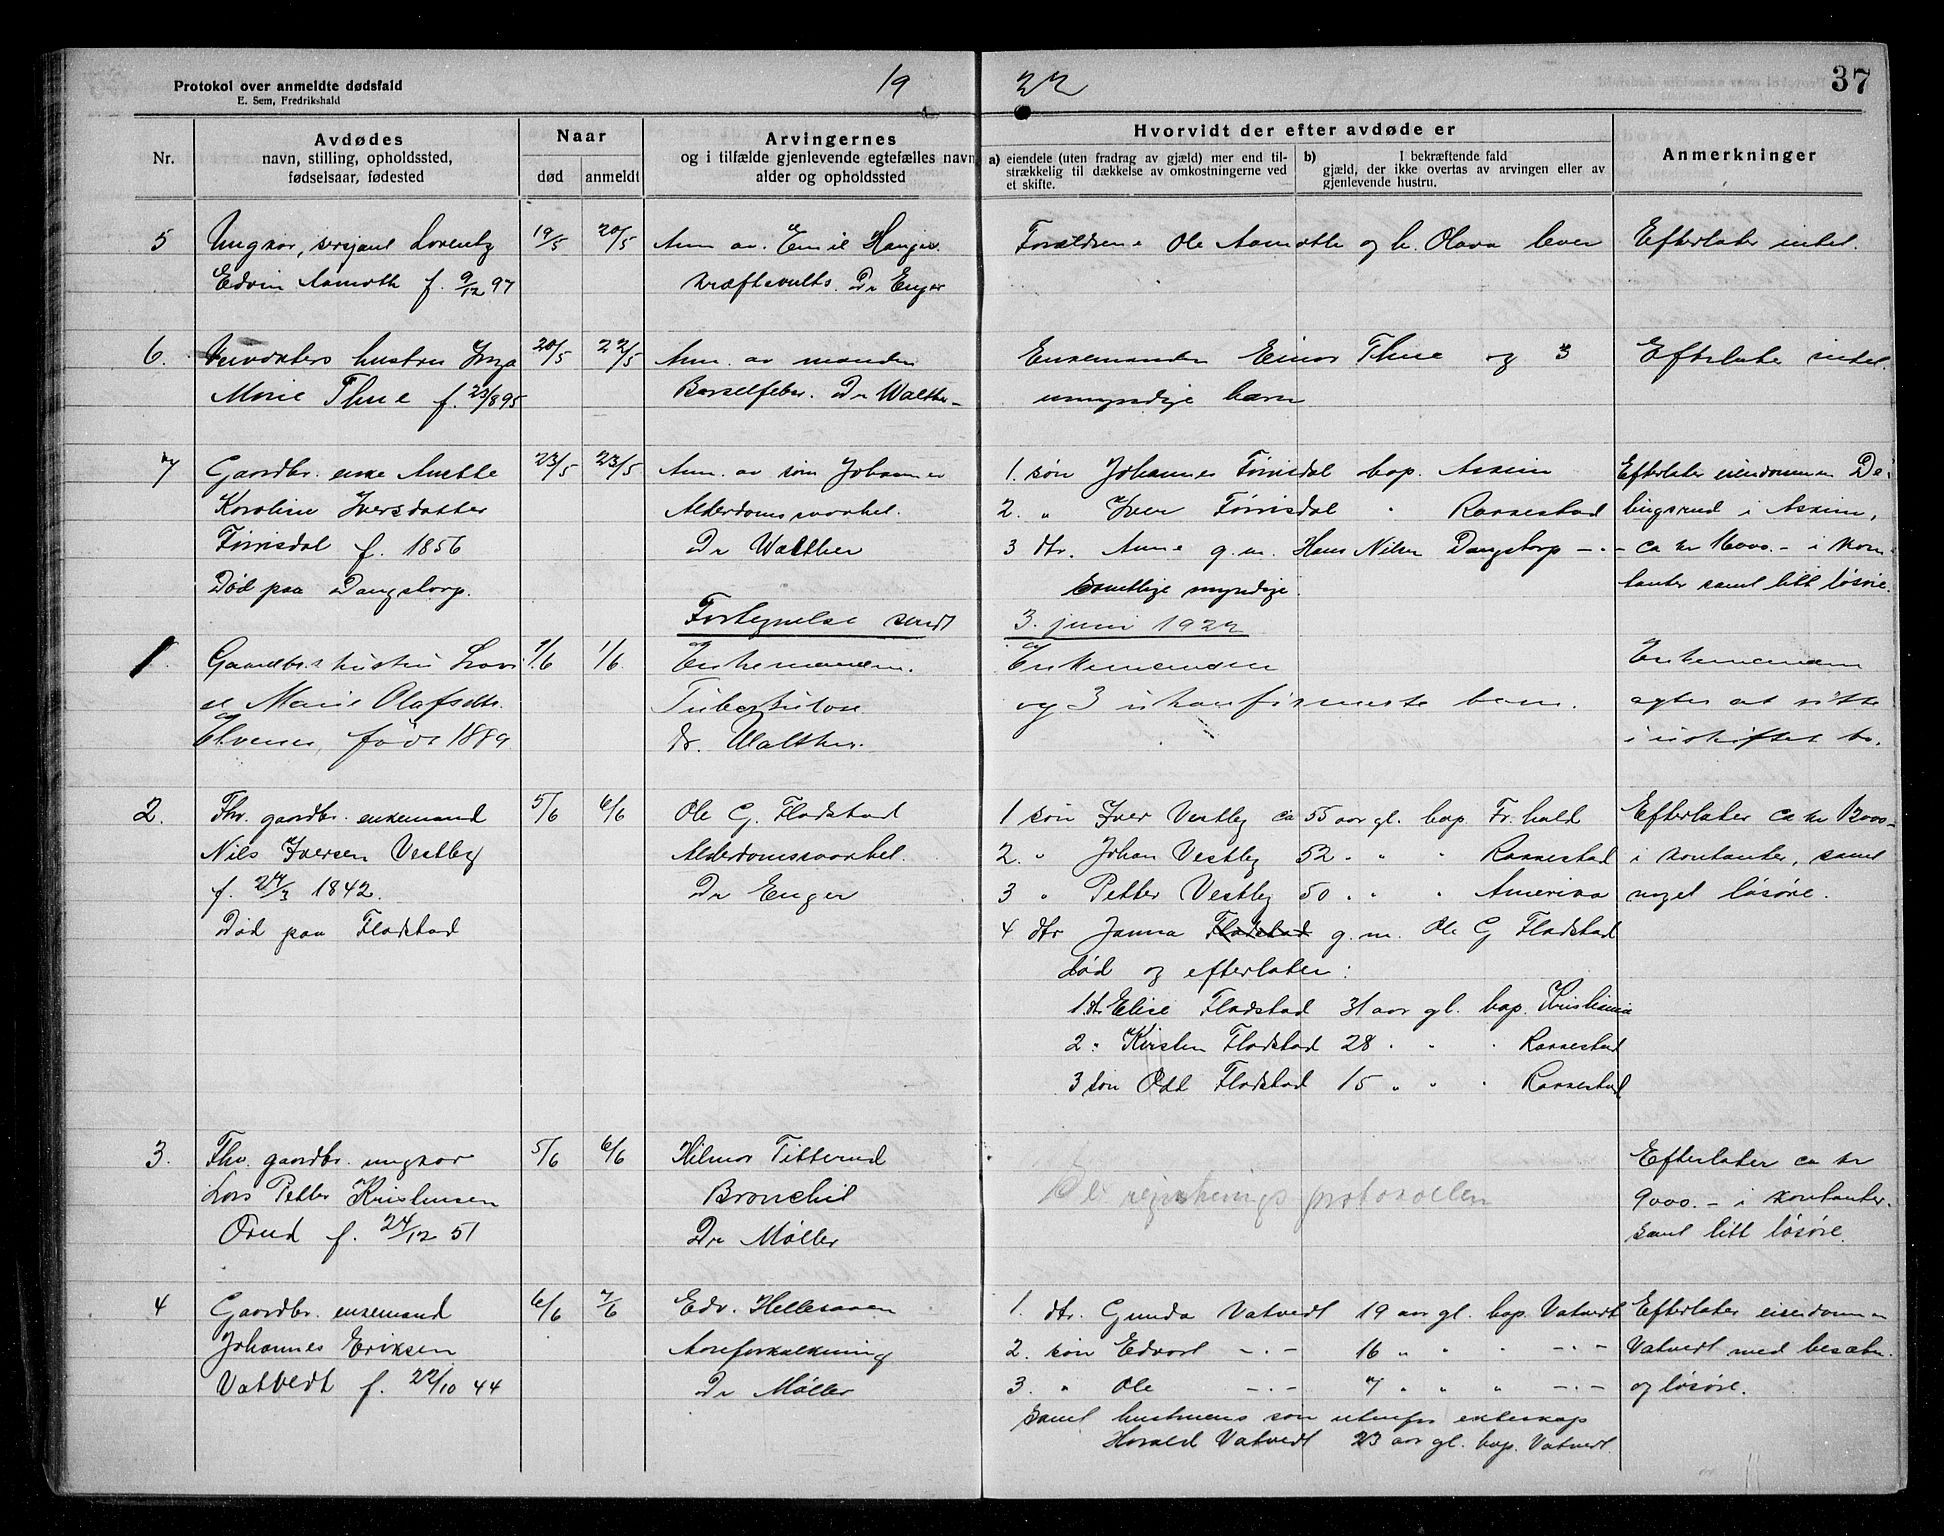 Protokol over anmeldte dødsfald
E. Sem, Fredrikshald
19 22
37
Nr.
Avdødes
navn, stilling, opholdssted,
fødselsaar, fødested
Naar
død
anmeldt
Arvingernes
og i tilfælde gjenlevende egtefælles navn
alder og opholdssted
Hvorvidt der efter avdøde er
a) eiendele (uten fradrag av gjæld) mer end til-
strækkelig til dækkelse av omkostningerne ved
et skifte.
b) I bekræftende fald
gjæld, der ikke overtas av arvingen eller av
gjenlevende hustru.
Anmerkninger
5 Ungkar, serjant Lorentz 19/5 20/5 Anm av. Emil Forældrene Ole Aamoth og h. Olava lever Efterlater intet.
Edvin Aamoth f. 9/12 97 Dr Enger
6. hustru Inga 20/5 22/5 Anm. av manden Enkemanden Einar Thue og 3 Efterlater intet.
Marie Thue f. 23/8 95 Barselfeber. Dr Walther umyndige barn
7 Gaardbr. enke Anette 23/5 23/5 Anm. av søn Johannes 1. søn Johannes Tørrisdal bop. Askim Efterlater eiendommen De-
Karoline Iversdatter Alderdomssvakhet. 2. " Iver Tørrisdal " Rakkestad lingsrud i Askim,
Tørrisdal f. 1856 Dr Walther 3 dtr. Anne g.m. Hans Nilsen Dangstorp - " - ca kr 16000.- i kon-
Død paa Dangstorp. samtlige myndige. tanter samt litt løsøre.
Fortegnelse sendt 3. juni 1922
1. Gaardbr.s hustru Lovi 1/6 1/6 Enkemanden. Enkemanden Enkemanden
se Marie Olafsdtr. Tuberkulose og 3 ukonfirmerte barn. agter at sitte
Elvenes, født 1889 dr. Walther. i uskiftet bo.
2. Fhv. gaardbr. enkemand 5/6 6/6 Ole G. Fladstad 1 søn Iver Vestby ca 55 aar gl. bop. Fr.hald Efterlater ca kr 12000-
Nils Iversen Vestby Alderdomssvakhet. 2. " Johan Vestby 52 " " " Rakkestad i kontanter, samt
f. 27/3 1842. Dr Enger 3 " Petter Vestby 50 " " " Amerika noget løsøre.
Død paa Fladstad 4 dtr Janna Fladstad g.m. Ole G Fladstad
død og efterlater:
1. dtr Elise Fladstad 31 aar gl. bop. Kristiania
2. " Kirsten Fladstad 28 " " " Rakkestad
3 søn Odd Fladstad 15 " " " Rakkestad
3. Fhv. gaardbr. ungkar 5/6 6/6 Hilmar Titterud Efterlater ca kr
Lars Petter Kristensen Bronchit Se registreringsprotokollen 9000.- i kontanter
Orud f. 24/12 51 Dr Møller samt litt løsøre.
4 Gaardbr. enkemand 6/6 7/6 Edv. Hellesaaen 1. dtr. Gunda Vatvedt 19 aar gl. bop. Vatvedt Efterlater eiendommen
Johannes Eriksen Aareforkalkning 2. søn Edvart - " - 16 " " " - " - Vatvedt med besætn.
Vatvedt f. 22/10 44 Dr Møller 3. " Ole - " - 7 " " " - " - og løsøre.
samt hustruens søn utenfor ekteskap
Harald Vatvedt 23 aar gl. bop. Vatvedt.